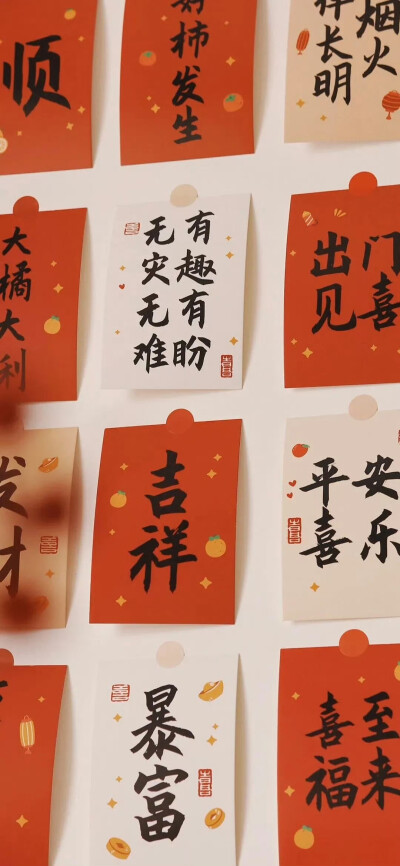 顺
好柿发生
烟火
长明
大橘大利
有趣有盼
无灾无难
出门
见喜
发财
吉祥
平安
喜乐
暴富
喜至
福来